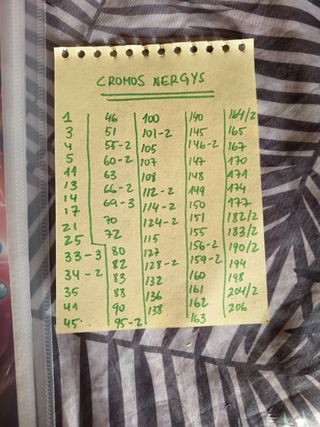 CROMOS NERGYS
1
3
4
5
11
13
14
17
21
25
33-3
34-2
35
41
45
46
51
55-2
60-2
63
66-2
69-3
70
72
80
82
83
88
90
95-2
100
101-2
105
107
108
112-2
114-2
124-2
115
127
128-2
132
136
138
140
145
146-2
147
148
149
150
151
155
156-2
159-2
160
161
162
163
164/2
165
167
170
171
174
177
182/2
183/2
190/2
194
198
204/2
206